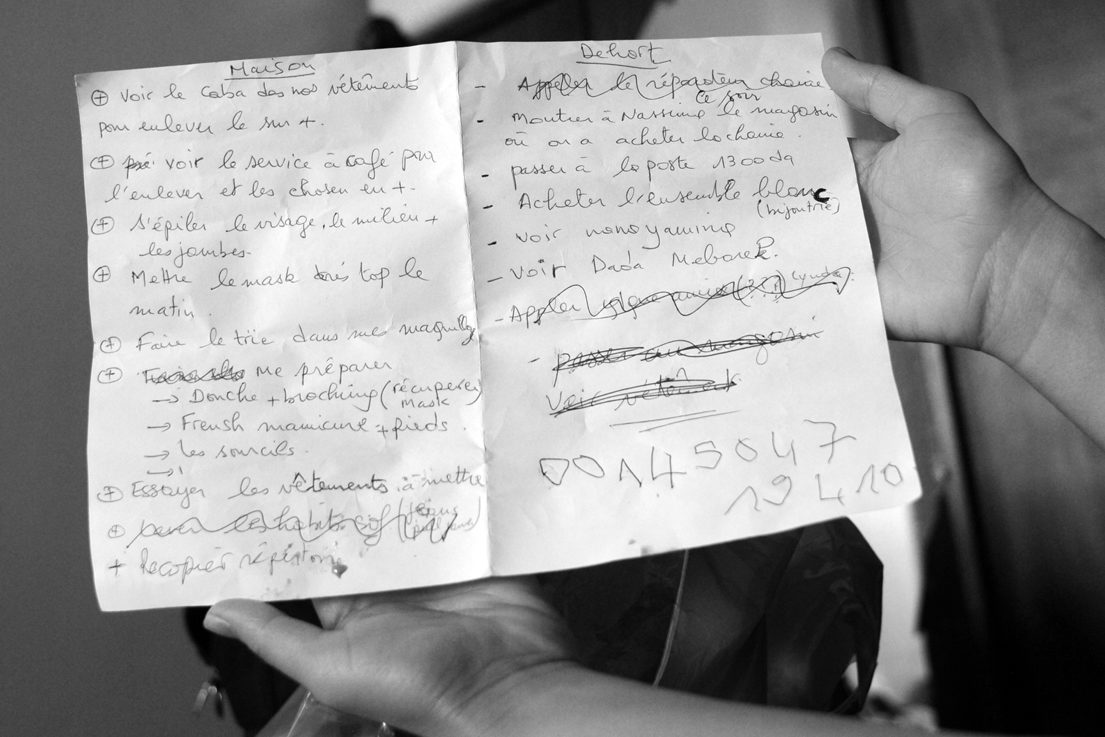 Maison
⊕ Voir le caba des nos vétêments
pour enlever le sur +.
⊕ pré voir le service à café pour
l'enlever et les chosen en +.
⊕ s'épiler le visage, le milieu +
les jambes.
⊕ Mettre le mask très top le
matin.
⊕ Faire le trie dans mes maquilly
⊕ me préparer
→ Douche + broching (récuperer
mask
→ Frensh manicure + pieds.
→ les sourcils.
→
⊕ Essayer les vêtements à mettre
+ Recopier répértoire
Dehort
- Appler le réparateur chaine
ce jour
- Montrer à Nassima le magasin
où on a acheter la chaine.
- passer à la poste 1300 da
- Acheter l'ensemble blanc
(bijoutrie)
- voir nanoyamina
- Voir Dada Mebarek.
- Appler Lynda
- passer au magasin
Voir vétement
00145047
19410